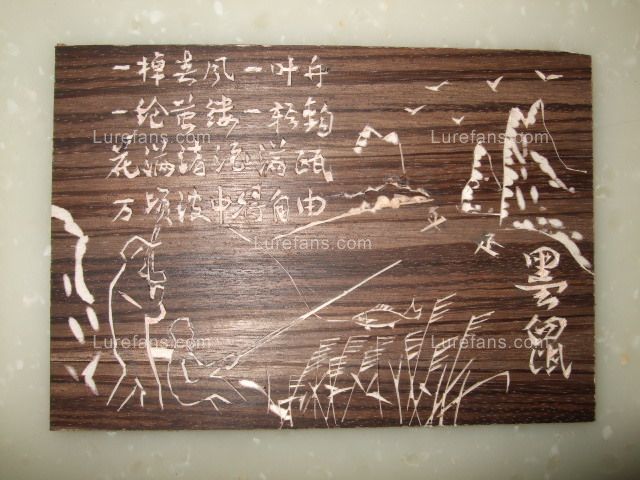 一棹春风一叶舟
一纶茧缕一轻钩
花满渚酒满瓯
万顷波中得自由
墨鼠
Lurefans.com
Lurefans.com
Lurefans.com
Lurefans.com
Lurefans.com
Lurefans.com
Lurefans.com
Lurefans.com
Lurefans.com